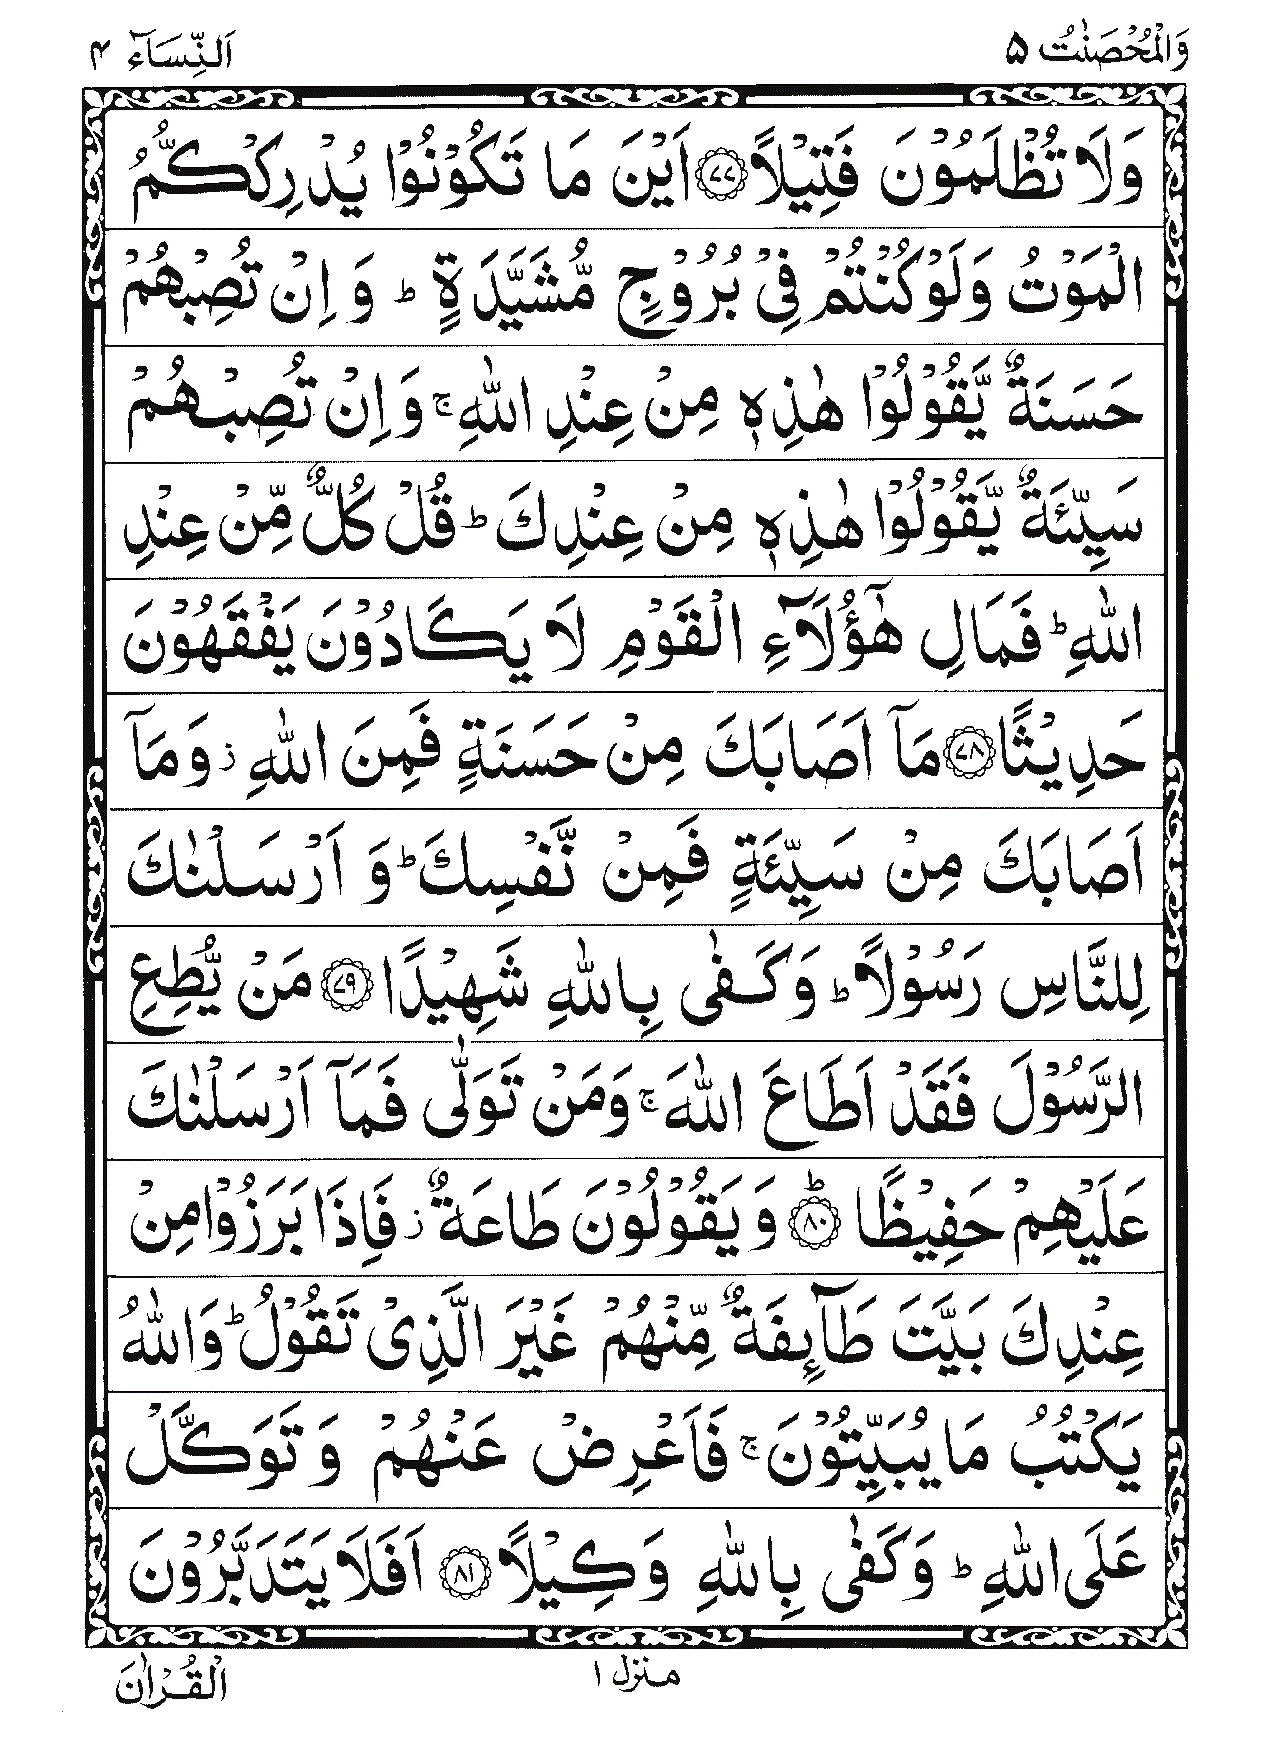 وَالْمُحْصَنٰتُ ۵
اَلنِّسَآء ۴
وَلَا تُظْلَمُوْنَ فَتِیْلًا ﴿۷۷﴾ اَیْنَ مَا تَكُوْنُوْا یُدْرِكْكُّمُ
الْمَوْتُ وَلَوْ كُنْتُمْ فِیْ بُرُوْجٍ مُّشَیَّدَةٍ ؕ وَ اِنْ تُصِبْهُمْ
حَسَنَةٌ یَّقُوْلُوْا هٰذِهٖ مِنْ عِنْدِ اللّٰهِ ۚ وَ اِنْ تُصِبْهُمْ
سَیِّئَةٌ یَّقُوْلُوْا هٰذِهٖ مِنْ عِنْدِكَ ؕ قُلْ كُلٌّ مِّنْ عِنْدِ
اللّٰهِ ؕ فَمَالِ هٰۤؤُلَآءِ الْقَوْمِ لَا یَكَادُوْنَ یَفْقَهُوْنَ
حَدِیْثًا ﴿۷۸﴾ مَاۤ اَصَابَكَ مِنْ حَسَنَةٍ فَمِنَ اللّٰهِ ؗ وَمَاۤ
اَصَابَكَ مِنْ سَیِّئَةٍ فَمِنْ نَّفْسِكَ ؕ وَ اَرْسَلْنٰكَ
لِلنَّاسِ رَسُوْلًا ؕ وَ كَفٰی بِاللّٰهِ شَهِیْدًا ﴿۷۹﴾ مَنْ یُّطِعِ
الرَّسُوْلَ فَقَدْ اَطَاعَ اللّٰهَ ۚ وَمَنْ تَوَلّٰی فَمَاۤ اَرْسَلْنٰكَ
عَلَیْهِمْ حَفِیْظًا ﴿۸۰﴾ؕ وَ یَقُوْلُوْنَ طَاعَةٌ ؗ فَاِذَا بَرَزُوْا مِنْ
عِنْدِكَ بَیَّتَ طَآئِفَةٌ مِّنْهُمْ غَیْرَ الَّذِیْ تَقُوْلُ ؕ وَاللّٰهُ
یَكْتُبُ مَا یُبَیِّتُوْنَ ۚ فَاَعْرِضْ عَنْهُمْ وَ تَوَكَّلْ
عَلَی اللّٰهِ ؕ وَكَفٰی بِاللّٰهِ وَكِیْلًا ﴿۸۱﴾ اَفَلَا یَتَدَبَّرُوْنَ
منزل ۱
الْقُرْاٰنَ